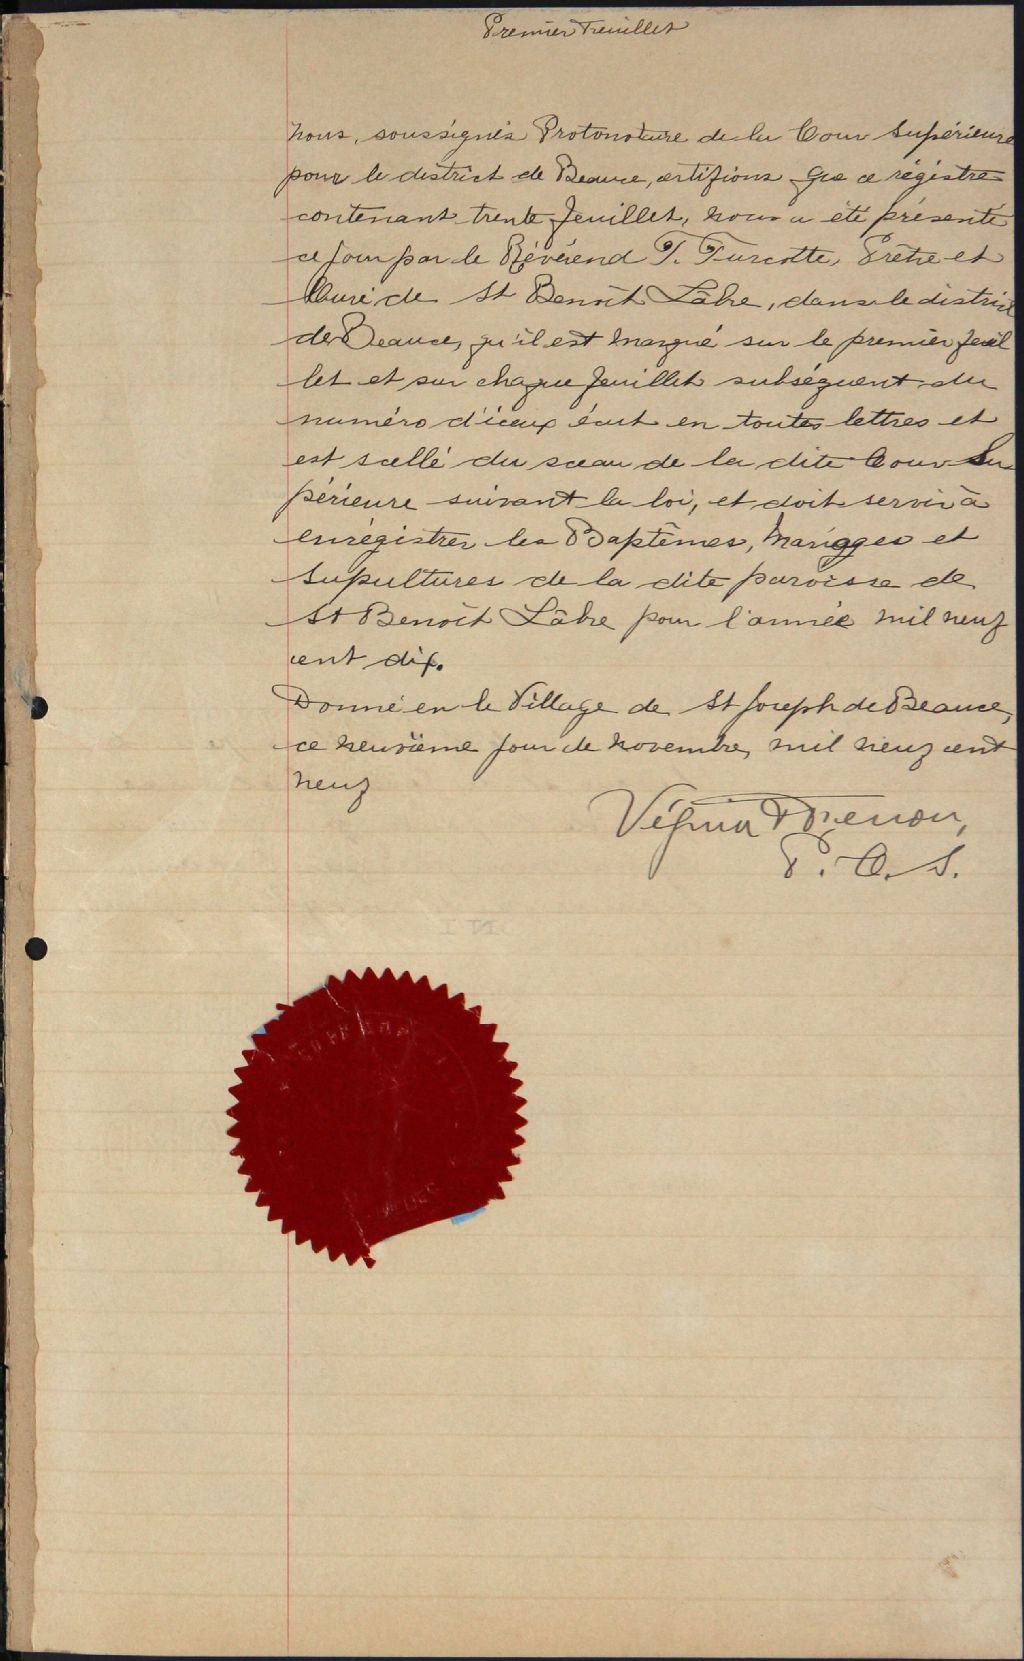 Premier Feuillet
Nous, soussignés Protonotaire de la Cour Supérieure
pour le district de Beauce, certifions que ce régistre
contenant trente feuillet, nous a été présenté
ce jour par le Révérend T. Turcotte, Prêtre et
Curé de St Benoît Lâbre, dans le district
de Beauce, qu'il est marqué sur le premier feuil
let et sur chaque feuillet subséquent du
numéro d'iceux écrit en toutes lettres et
est scellé du sceau de la dite Cour Su
périeure suivant la loi, et doit servir à
enrégistrer les Baptêmes, Mariages et
Supultures de la dite paroisse de
St Benoît Lâbre pour l'année mil neuf
cent dix.
Donné en le Village de St Joseph de Beauce,
ce neuvième jour de novembre, mil neuf cent
neuf
P. C. S.